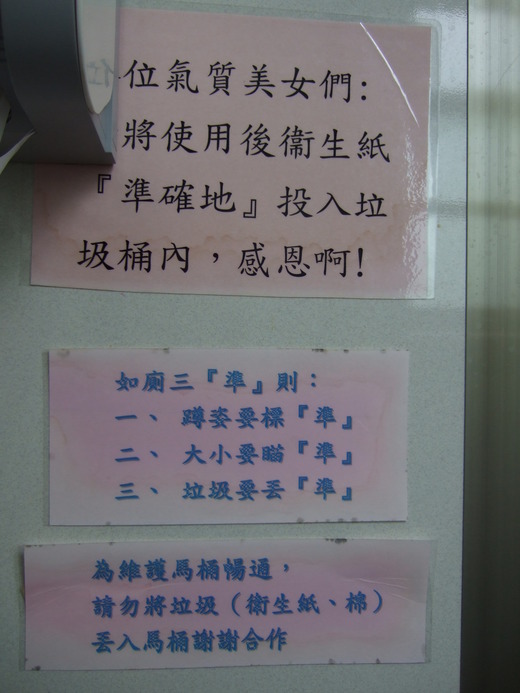 位氣質美女們:
將使用後衛生紙
『準確地』投入垃
圾桶內，感恩啊!
如廁三『準』則：
一、 蹲姿要標『準』
二、 大小要瞄『準』
三、 垃圾要丟『準』
為維護馬桶暢通，
請勿將垃圾（衛生紙、棉）
丟入馬桶謝謝合作